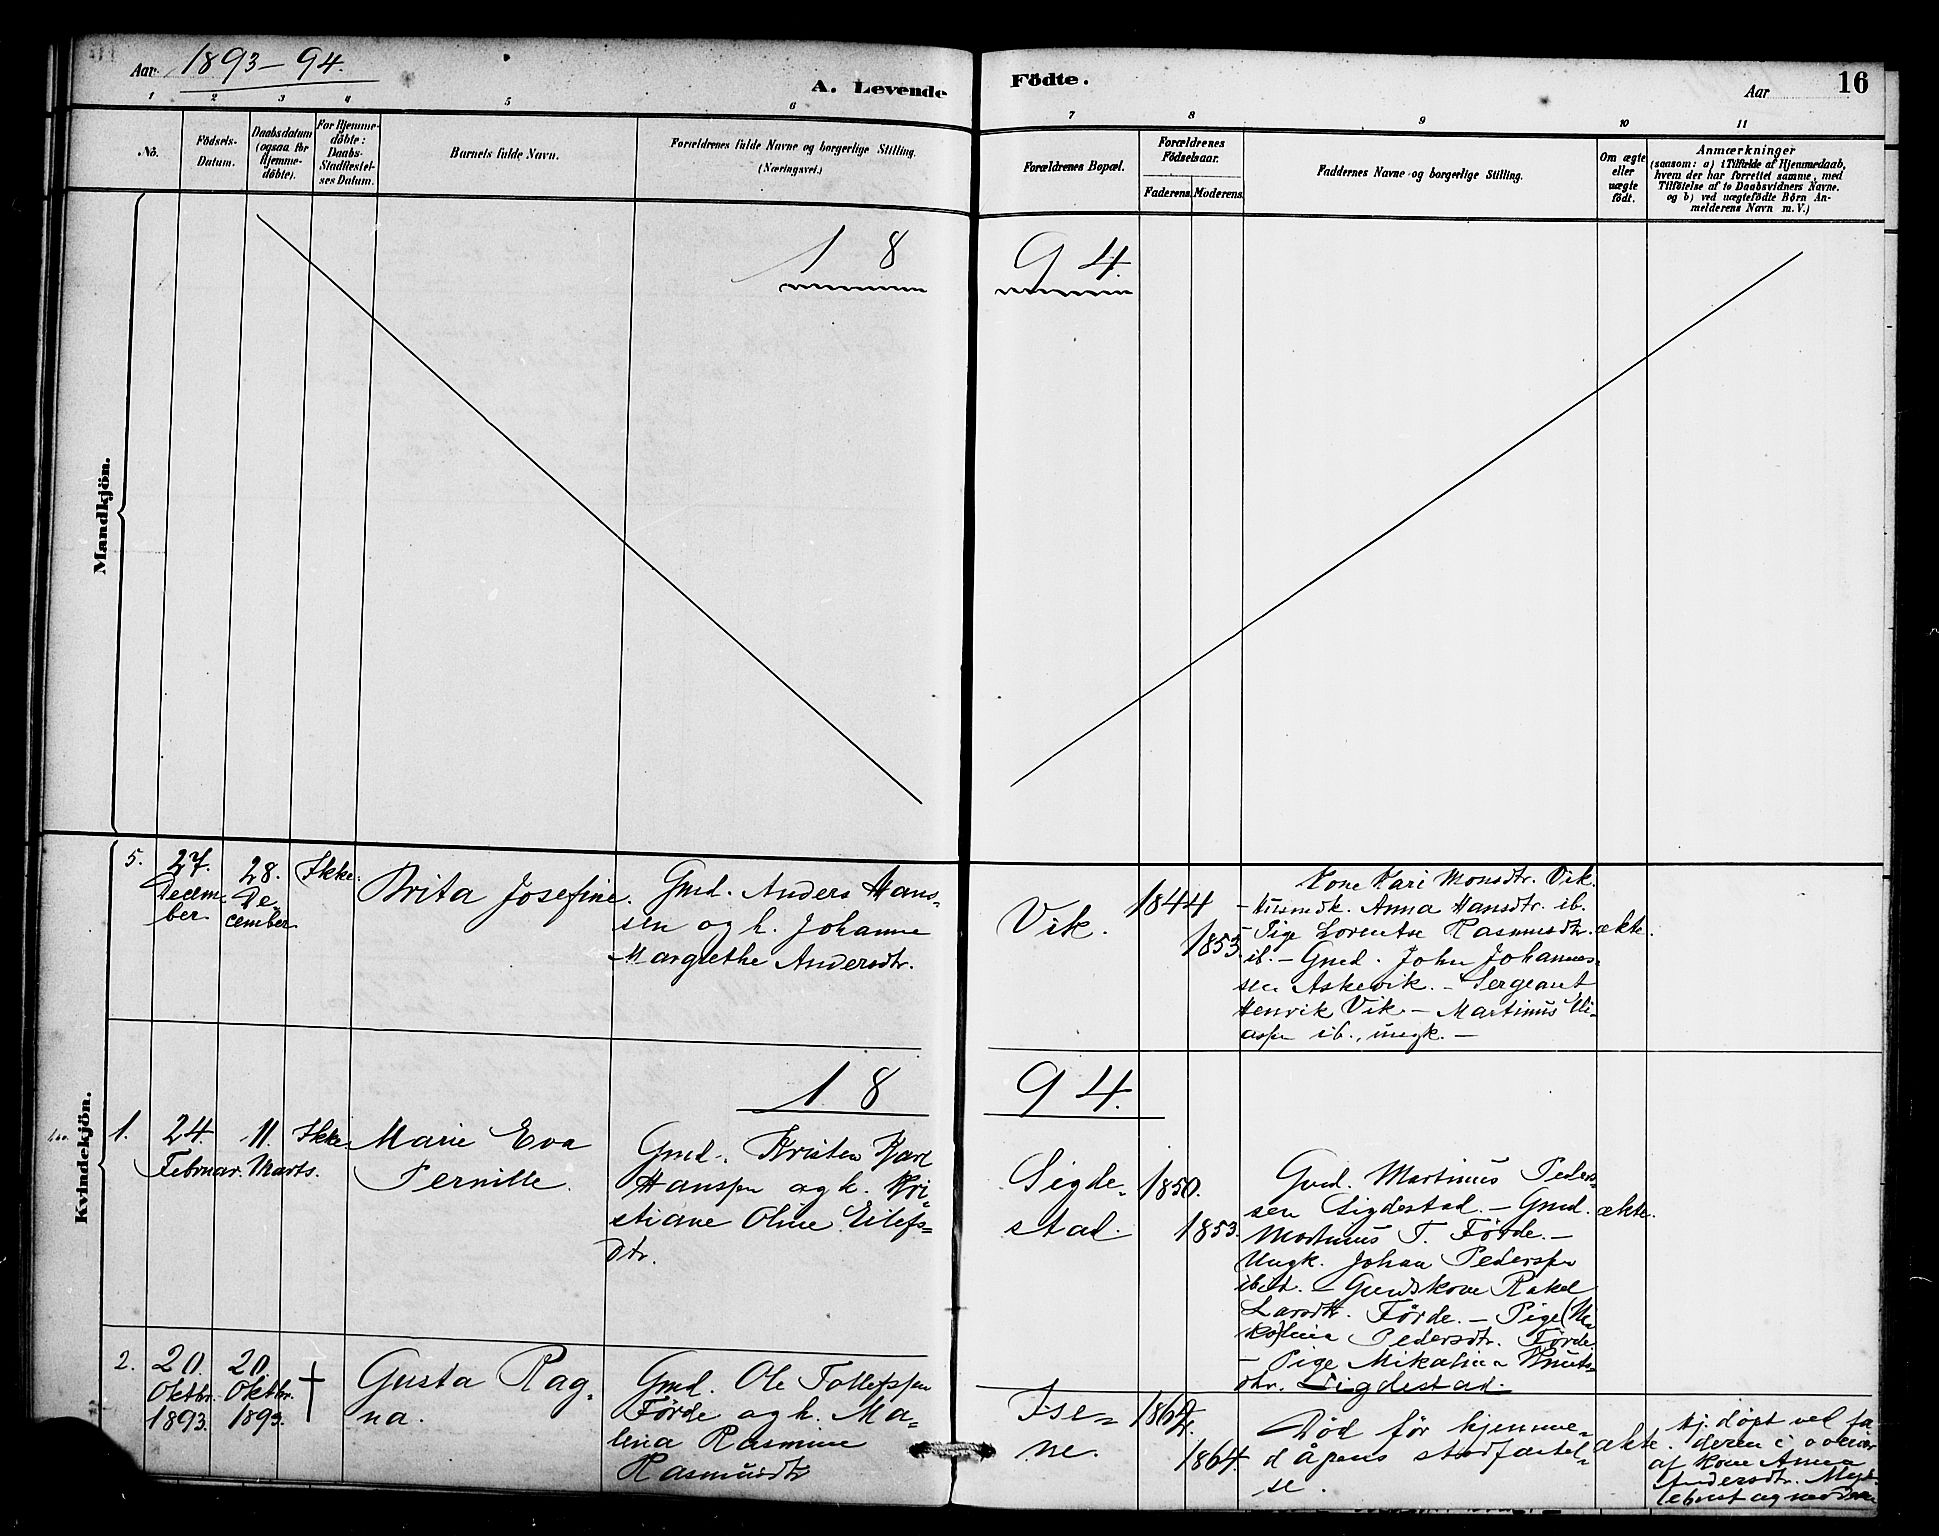 Aar 1893-94.
A. Levende
Födte.
Aar
16
1 2 3 4 5 6 7 8 9 10 11
No.
Födsels-
Datum.
Daabsdatum
(ogsaa for
Hjemme-
döbte).
For Hjemme-
döbte:
Daabs-
Stadfæstel-
ses Datum.
Barnets fulde Navn.
Forældrenes fulde Navne og borgerlige Stilling.
(Næringsvei.)
Forældrenes Bopæl.
Forældrenes
Födselsaar.
Faderens.
Moderens.
Faddernes Navne og borgerlige Stilling.
Om ægte
eller
uægte
födt.
Anmærkninger
(saasom: a) i Tilfælde af Hjemmedaab,
hvem der har forrettet samme, med
Tilföielse af to Daabsvidners Navne.
og b) ved uægtefödte Börn An-
melderens Navn m. V.)
Mandkjön.
18
94.
Kvindekjön.
5.
27.
Decem-
ber.
28.
De-
cember.
Ikke.
Brita Josefine.
Gmd. Anders Hans-
sen og h. Johanne
Margrethe Andersdtr.
Vik.
1844
1853.
Kone Kari Monsdtr. Vik.
- Husmdk. Anna Hansdtr. ib.
- Pige Lorentse Rasmusdtr.
ib. - Gmd. John Johannes-
sen Askevik. - Sergeant
Henrik Vik - Martinus Eli-
assen ib., ungk. -
ækte.
18
94.
1.
24.
Februar.
11.
Marts.
Ikke
Marie Eva
Pernille.
Gmd. Kristen Kjarl
Hanssen og h. Kri-
stiane Oline Eilefs-
dtr.
Sigde-
stad.
1850.
1853.
Gmd. Martinus Peder-
sen Sigdestad. - Gmd.
Martinus T. Förde. -
Ungk. Johan Pederssen
ibid. - Gmdskone Rakel
Larsdtr. Förde. - Pige
Pedersdtr. Förde.
- Pige Mikalina Knuts-
dtr. Sigdestad.
ækte.
2.
20.
Oktbr.
1893.
20.
Oktbr.
1893.
†
Gusta Rag-
na.
Gmd. Ole Tollefssen
Förde og h. Ma-
lena Rasmine
Rasmusdtr
Ise-
ne.
1864.
Död før hjemme-
dåpens stadfæstel-
se.
ækte.
hj. døpt ved fa-
deren i overvær
af kone Anna
Andersdtr.